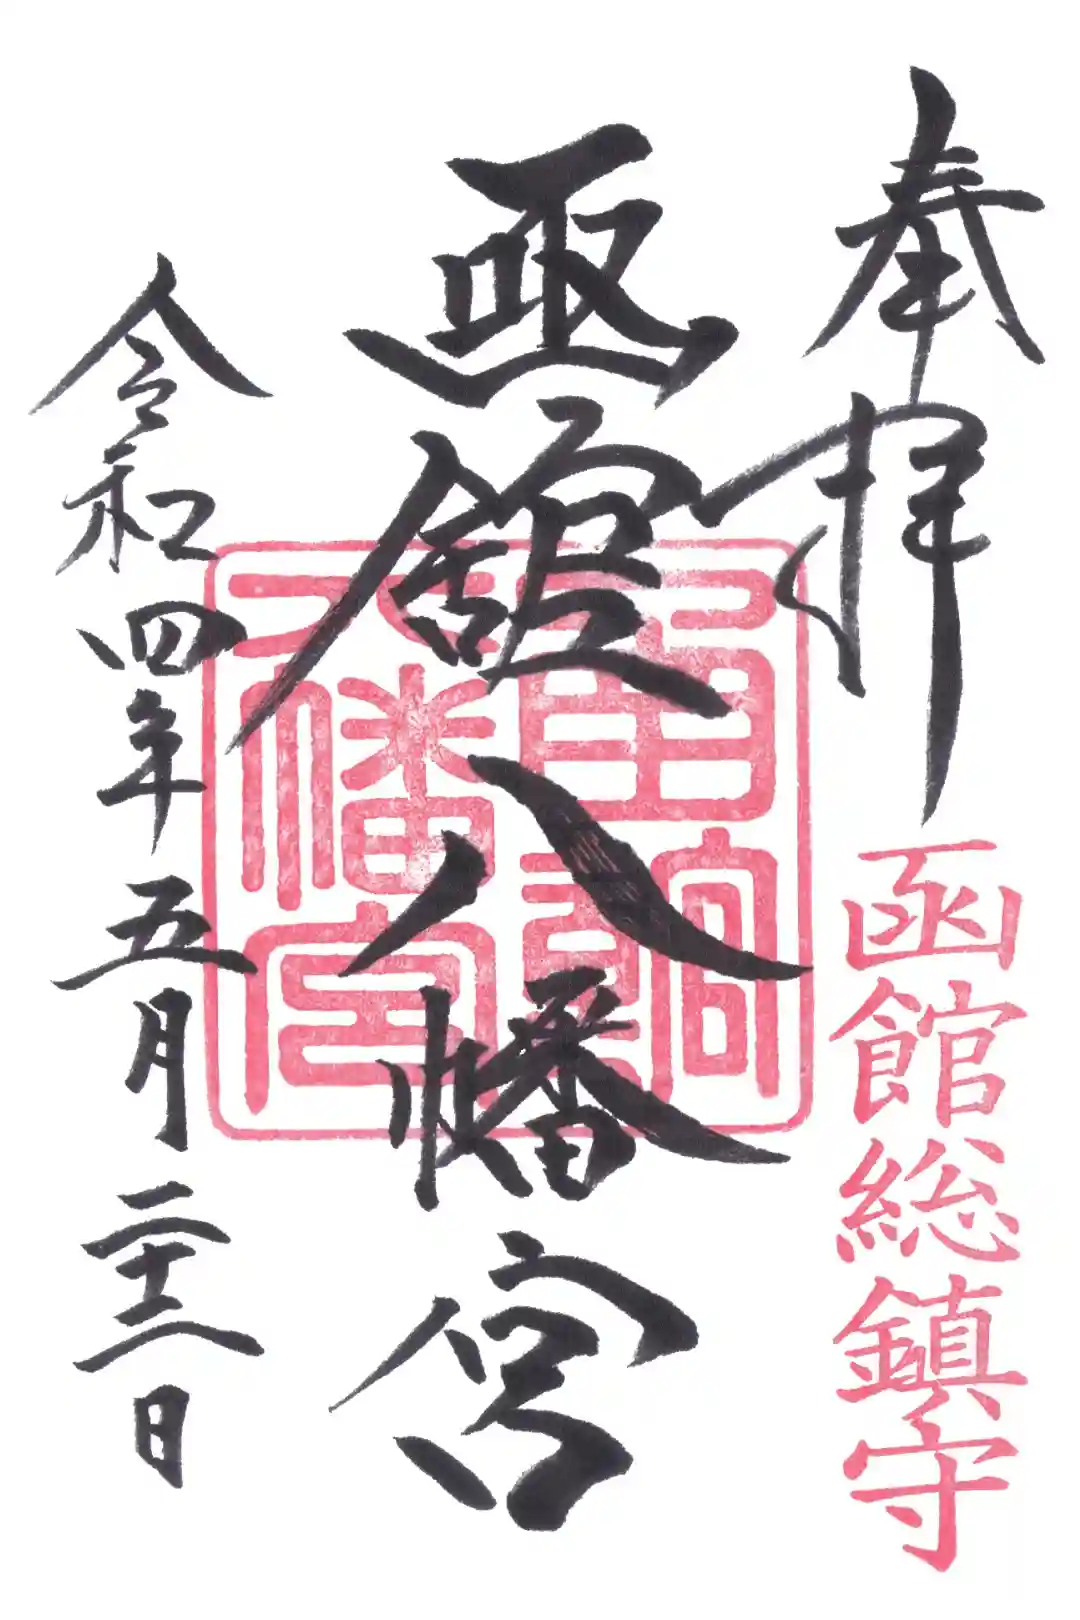 奉拝
函館総鎮守
函館八幡宮
函館八幡宮
令和四年五月二十二日